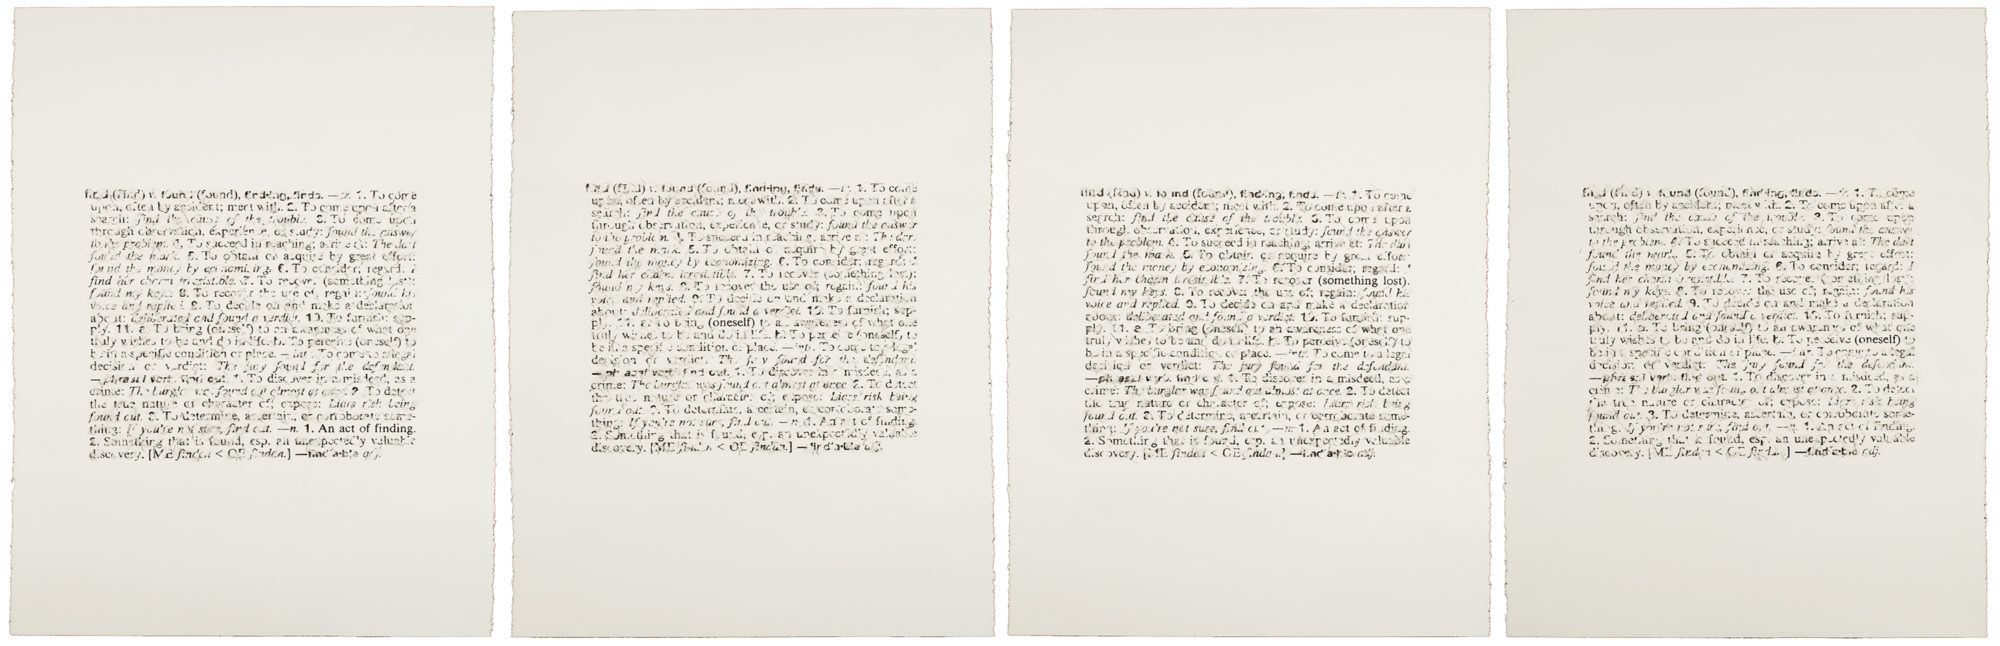 find (find) v. found (found), finding, finds. —tr. 1. To come
upon, often by accident; meet with. 2. To come upon after a
search: find the cause of the trouble. 3. To come upon
through observation, experience, or study: found the answer
to the problem. 4. To succeed in reaching; arrive at: The dart
found the mark. 5. To obtain or acquire by great effort:
found the money by economizing. 6. To consider; regard: I
find her charm irresistible. 7. To recover (something lost):
found my keys. 8. To recover the use of; regain: found his
voice and replied. 9. To decide on and make a declaration
about: deliberated and found a verdict. 10. To furnish; sup-
ply. 11. a. To bring (oneself) to an awareness of what one
truly wishes to be and do in life. b. To perceive (oneself) to
be in a specific condition or place. —intr. To come to a legal
decision or verdict: The jury found for the defendant.
—phrasal verb. find out. 1. To discover in a misdeed, as a
crime: The burglar was found out almost at once. 2. To detect
the true nature or character of; expose: Liars risk being
found out. 3. To determine, ascertain, or corroborate some-
thing: If you're not sure, find out. —n. 1. An act of finding.
2. Something that is found, esp. an unexpectedly valuable
discovery. [ME finden < OE findan.] —find'a·ble adj.
find (find) v. found (found), finding, finds. —tr. 1. To come
upon, often by accident; meet with. 2. To come upon after a
search: find the cause of the trouble. 3. To come upon
through observation, experience, or study: found the answer
to the problem. 4. To succeed in reaching; arrive at: The dart
found the mark. 5. To obtain or acquire by great effort:
found the money by economizing. 6. To consider; regard: I
find her charm irresistible. 7. To recover (something lost):
found my keys. 8. To recover the use of; regain: found his
voice and replied. 9. To decide on and make a declaration
about: deliberated and found a verdict. 10. To furnish; sup-
ply. 11. a. To bring (oneself) to an awareness of what one
truly wishes to be and do in life. b. To perceive (oneself) to
be in a specific condition or place. —intr. To come to a legal
decision or verdict: The jury found for the defendant.
—phrasal verb. find out. 1. To discover in a misdeed, as a
crime: The burglar was found out almost at once. 2. To detect
the true nature or character of; expose: Liars risk being
found out. 3. To determine, ascertain, or corroborate some-
thing: If you're not sure, find out. —n. 1. An act of finding.
2. Something that is found, esp. an unexpectedly valuable
discovery. [ME finden < OE findan.] —find'a·ble adj.
find (find) v. found (found), finding, finds. —tr. 1. To come
upon, often by accident; meet with. 2. To come upon after a
search: find the cause of the trouble. 3. To come upon
through observation, experience, or study: found the answer
to the problem. 4. To succeed in reaching; arrive at: The dart
found the mark. 5. To obtain or acquire by great effort:
found the money by economizing. 6. To consider; regard: I
find her charm irresistible. 7. To recover (something lost):
found my keys. 8. To recover the use of; regain: found his
voice and replied. 9. To decide on and make a declaration
about: deliberated and found a verdict. 10. To furnish; sup-
ply. 11. a. To bring (oneself) to an awareness of what one
truly wishes to be and do in life. b. To perceive (oneself) to
be in a specific condition or place. —intr. To come to a legal
decision or verdict: The jury found for the defendant.
—phrasal verb. find out. 1. To discover in a misdeed, as a
crime: The burglar was found out almost at once. 2. To detect
the true nature or character of; expose: Liars risk being
found out. 3. To determine, ascertain, or corroborate some-
thing: If you're not sure, find out. —n. 1. An act of finding.
2. Something that is found, esp. an unexpectedly valuable
discovery. [ME finden < OE findan.] —find'a·ble adj.
find (find) v. found (found), finding, finds. —tr. 1. To come
upon, often by accident; meet with. 2. To come upon after a
search: find the cause of the trouble. 3. To come upon
through observation, experience, or study: found the answer
to the problem. 4. To succeed in reaching; arrive at: The dart
found the mark. 5. To obtain or acquire by great effort:
found the money by economizing. 6. To consider; regard: I
find her charm irresistible. 7. To recover (something lost):
found my keys. 8. To recover the use of; regain: found his
voice and replied. 9. To decide on and make a declaration
about: deliberated and found a verdict. 10. To furnish; sup-
ply. 11. a. To bring (oneself) to an awareness of what one
truly wishes to be and do in life. b. To perceive (oneself) to
be in a specific condition or place. —intr. To come to a legal
decision or verdict: The jury found for the defendant.
—phrasal verb. find out. 1. To discover in a misdeed, as a
crime: The burglar was found out almost at once. 2. To detect
the true nature or character of; expose: Liars risk being
found out. 3. To determine, ascertain, or corroborate some-
thing: If you're not sure, find out. —n. 1. An act of finding.
2. Something that is found, esp. an unexpectedly valuable
discovery. [ME finden < OE findan.] —find'a·ble adj.